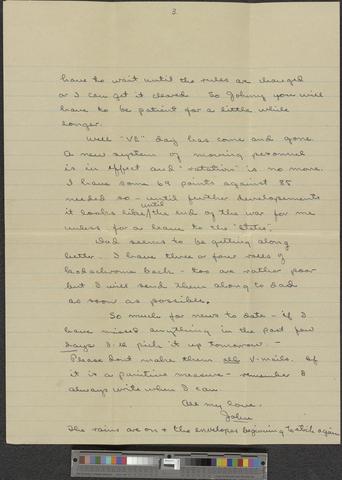 3.
have to wait until the rules are changed
or I can get it cleared. So Johnny you will
have to be patient for a little while
longer.
Well "VE" day has come and gone.
A new system of moving personnel
is in effect and "rotation" is no more.
I have some 69 points against 85
needed so - until further developements
it looks like/until the end of the war for me
unless for a leave to the "States".
Dad seems to be getting along
better. I have three or four rolls of
kodachrome back - two are rather poor
but I will send them along to dad
as soon as possible.
So much for news to date - if I
have missed anything in the past few
days I'll pick it up tomorrow. -
Please dont make them all V-mails. If
it is a punitive measure - remember I
always write when I can.
All my love.
John
The rains are on + the envelopes beginning to stick again